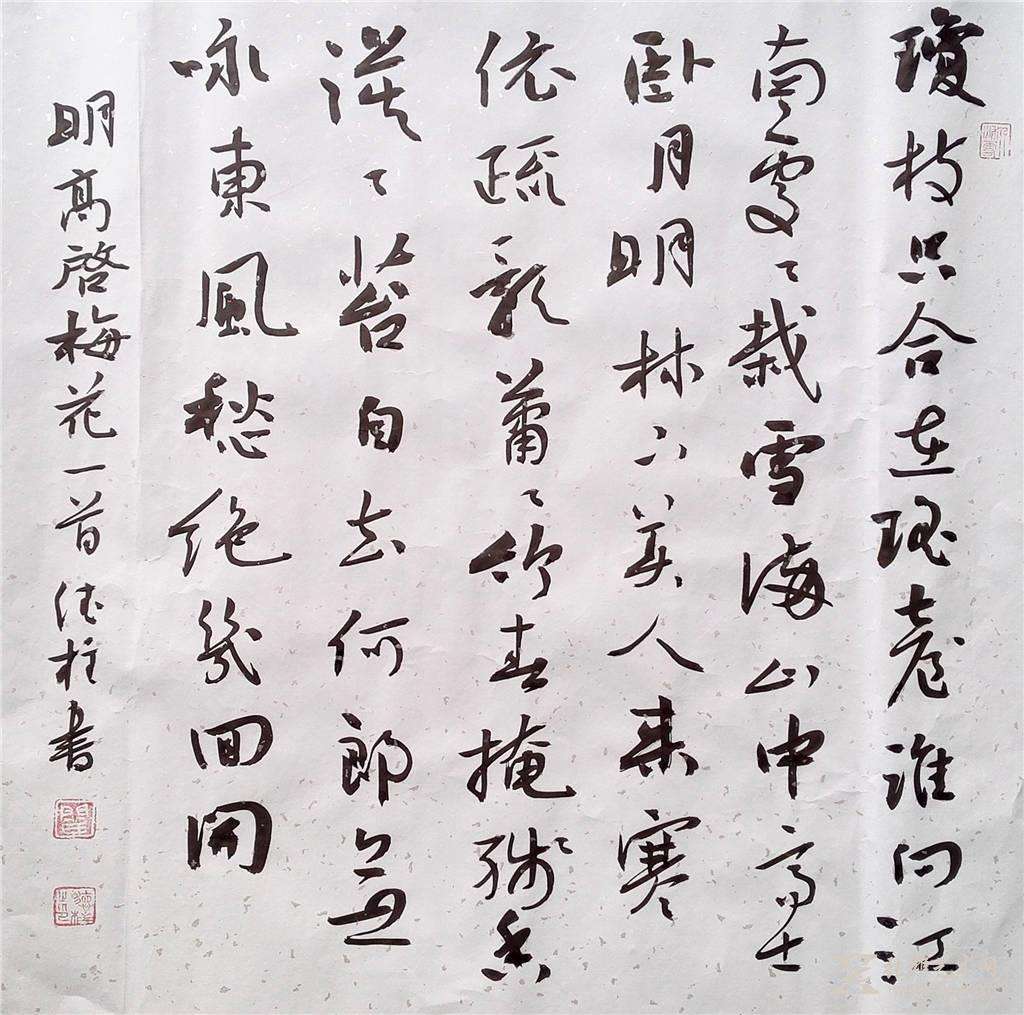 瓊枝只合在瑶臺誰向江
南處々栽雪滿山中高士
卧月明林下美人来寒
依疏影蕭々竹春掩殘香
漠々苔自去何郎無
咏東風愁絶幾回開
明高啓梅花一首 德柱書